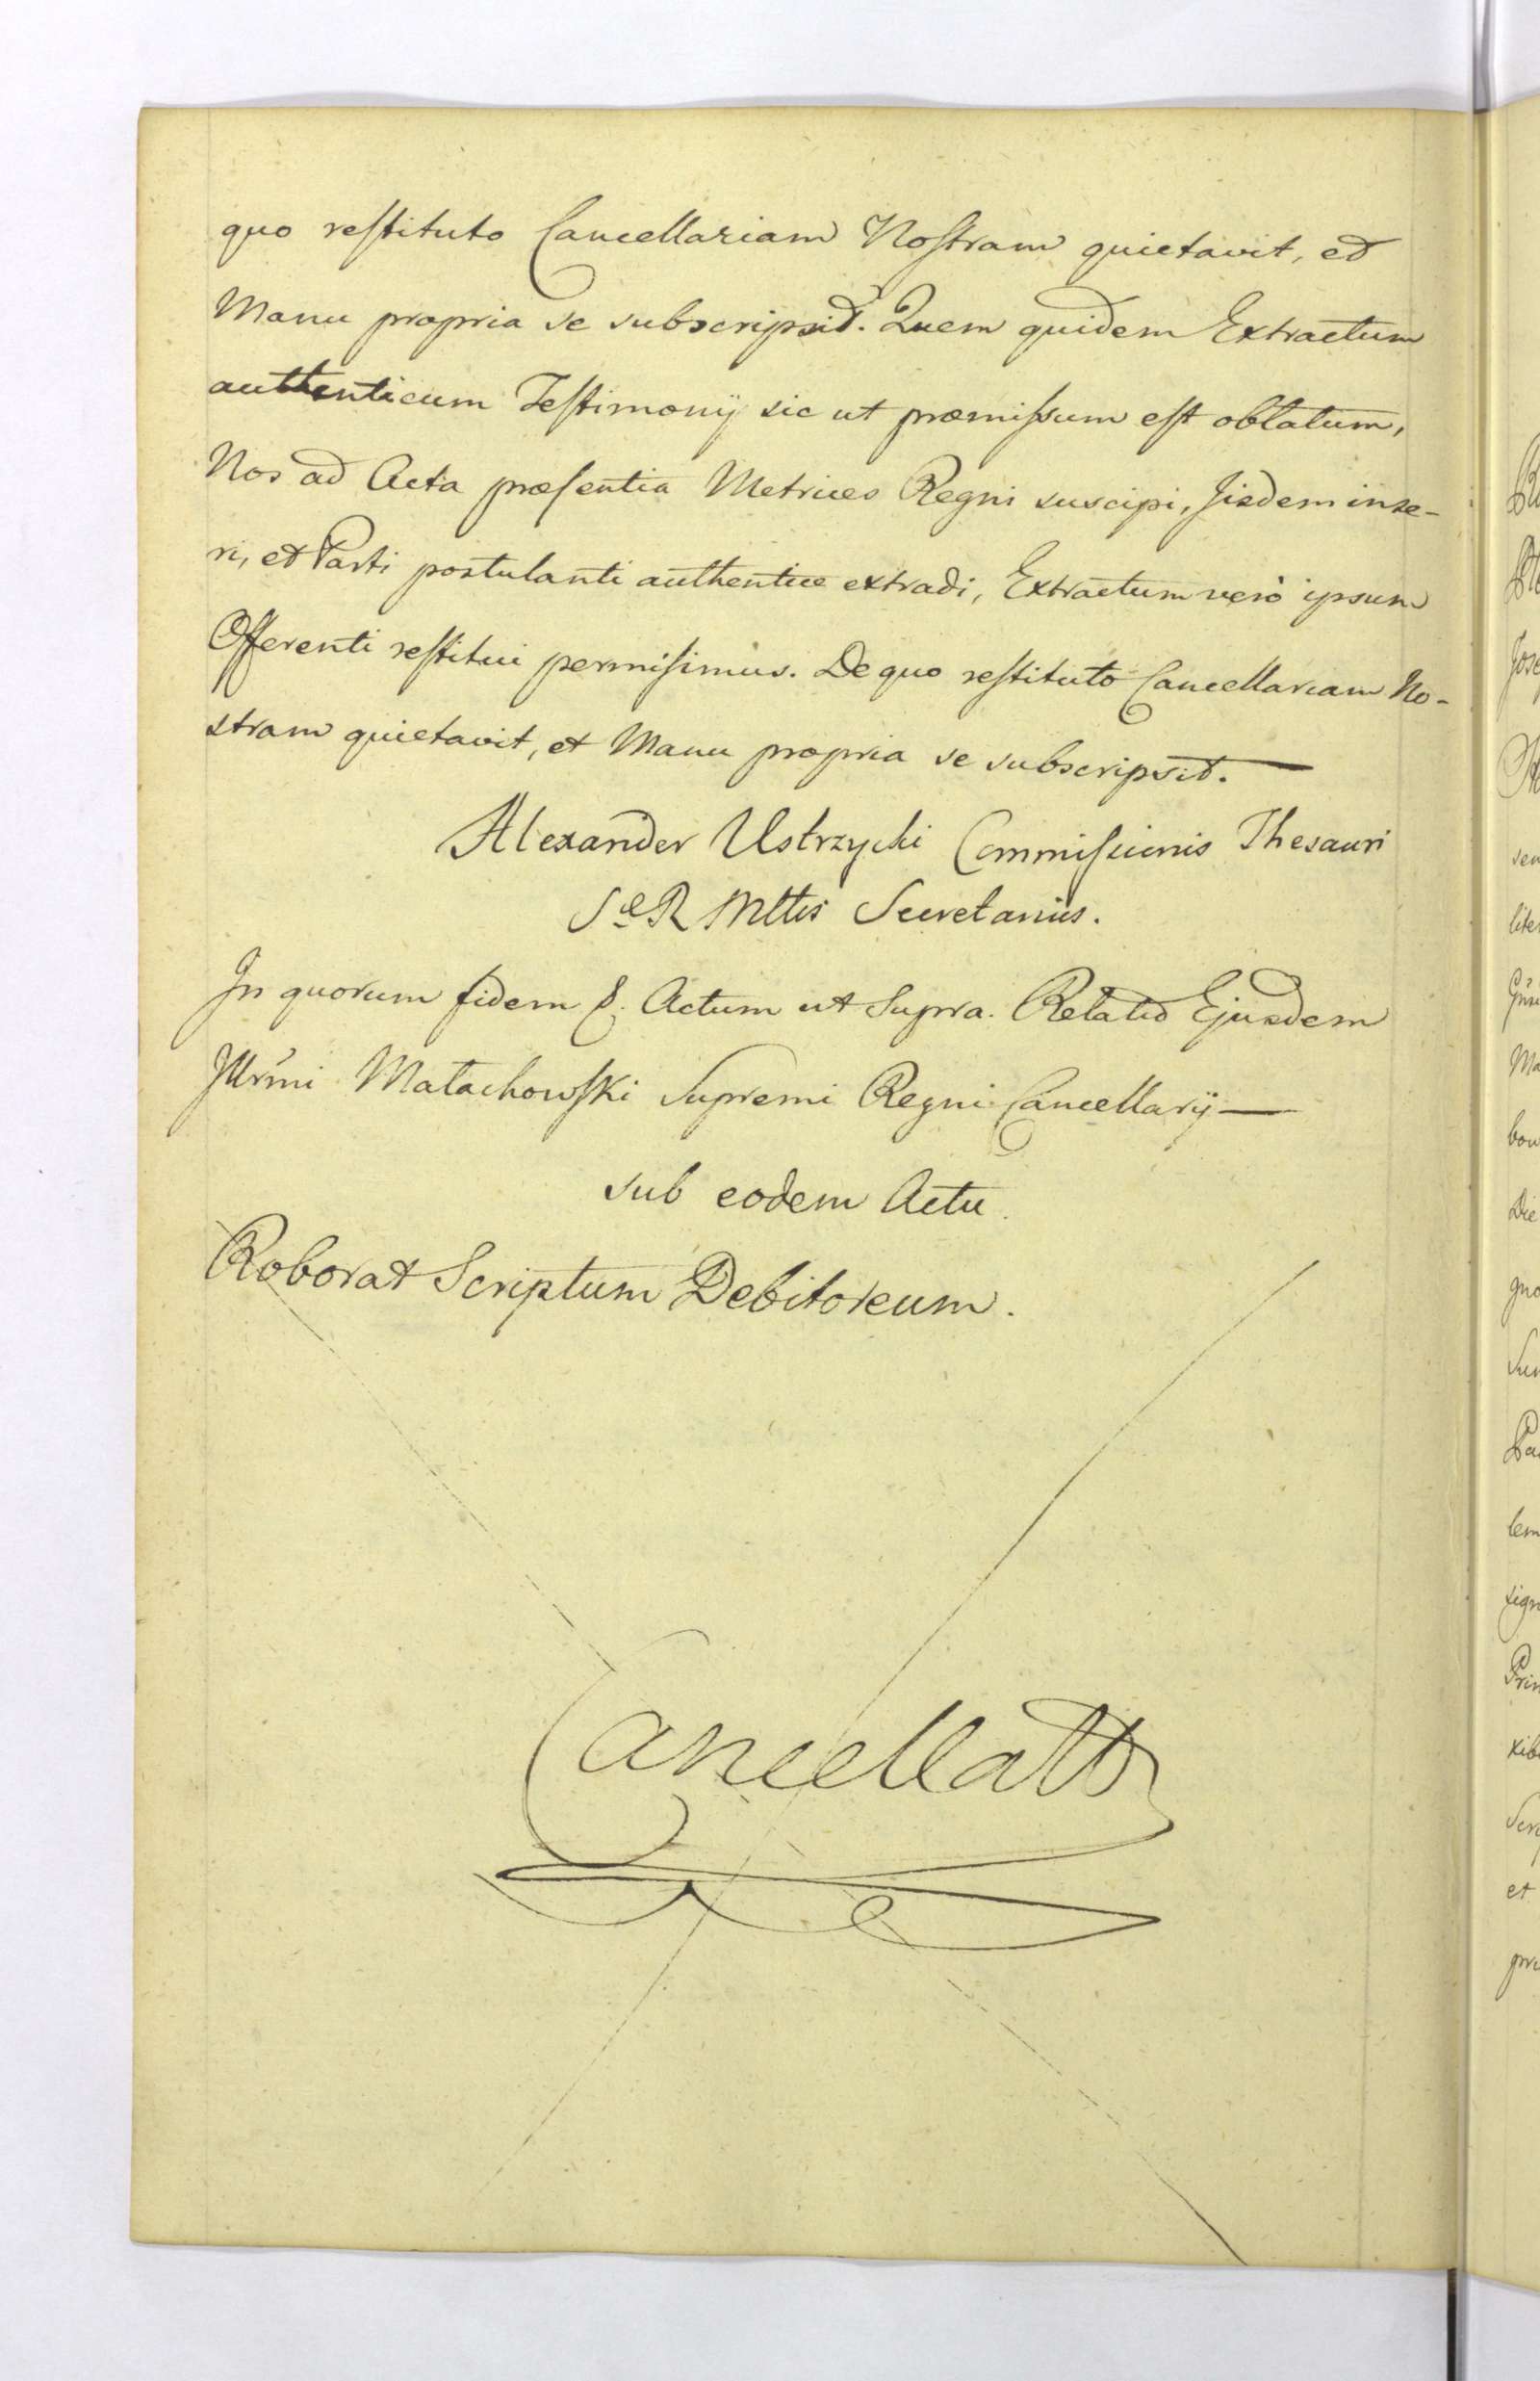 quo restituto Cancellariam Nostram quietavit, et
Manu propria se subscripsit. Quem quidem Extractum
authenticum Testimonij sic ut præmissum est oblatum,
Nos ad Acta præsentia Metrices Regni suscipi, Jisdem inse-
ri, et Parti postulanti authentice extradi, Extractum verò ipsum
Offerenti restitui permisimus. De quo restituto Cancellariam No-
stram quietavit, et Manu propria se subscripsit. —
Alexander Ustrzycki Commissionis Thesauri
S æ R Mttis Secretarius.
In quorum fidem &. Actum ut Supra. Relatio Ejusdem
Jllrmi Małachowski Supremi Regni Cancellarij —
sub eodem Actu.
Roborat Scriptum Debitoreum.
Cancellatt